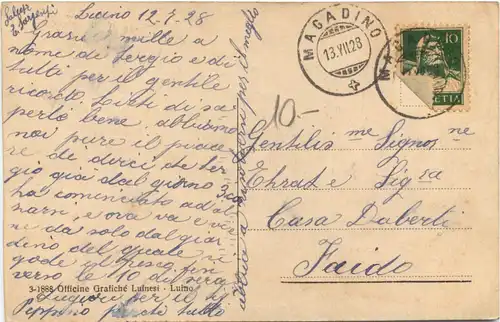 Saluti
E. Sargenti
Luino 12.7.28
Grazie mille a
nome di Sergio e di
tutti per il gentile
ricordo. Lieti di sa-
perlo bene abbiamo
noi pure il piace-
re di dirci che Ser-
gio già dal giorno 3
ha cominciato ad al-
zarsi, e ora va e vie-
ne da solo dal giar-
dino del quale si
gode il fresco fin
verso le 10 di sera
Auguri per il
Peppino perché tutto
per il meglio
MAGADINO
13.VII.28
10
HELVETIA
10.-
Gentilis.me Signo.ne
Ehrat e Sig.ra
Casa Daberti
Faido
3-1888 Officine Grafiche Luinesi - Luino